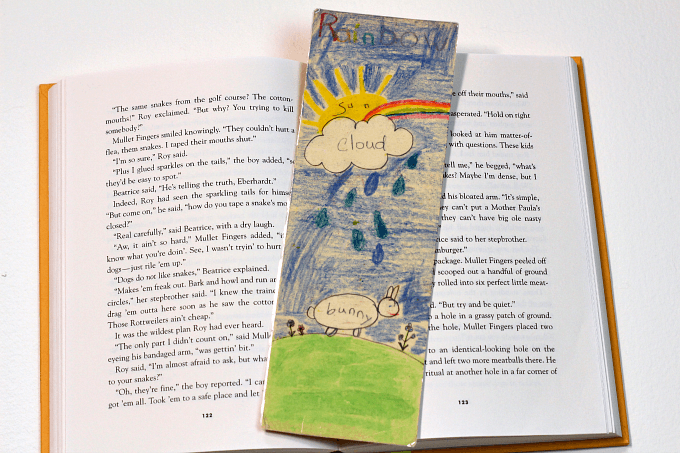 "The same snakes from the golf course? The cotton-
mouths!" Roy exclaimed. "But why? You trying to kill
somebody?"
Mullet Fingers smiled knowingly. "They couldn't hurt a
flea, them snakes. I taped their mouths shut."
"I'm so sure," Roy said.
"Plus I glued sparkles on the tails," the boy added,
they'd be easy to spot."
Beatrice said, "He's telling the truth, Eberhardt."
Indeed, Roy had seen the sparkling tails for himse
"But come on," he said, "how do you tape a snake's mo
closed?"
"Real carefully," said Beatrice, with a dry laugh.
"Aw, it ain't so hard," Mullet Fingers added,
know what you're doin'. See, I wasn't tryin' to hurt
dogs—just rile 'em up."
"Dogs do not like snakes," Beatrice explained.
"Makes 'em freak out. Bark and howl and run ar
circles," her stepbrother said. "I knew the traine
drag 'em outta here soon as he saw the cotton
Those Rottweilers ain't cheap."
It was the wildest plan Roy had ever heard.
"The only part I didn't count on," said Mull
eyeing his bandaged arm, "was gettin' bit."
Roy said, "I'm almost afraid to ask, but what
to your snakes?"
"Oh, they're fine," the boy reported. "I ca
got 'em all. Took 'em to a safe place and let
122
Rainbow
Sun
Cloud
bunny
e off their mouths," said
asperated. "Hold on right
looked at him matter-of-
with questions. These kids
tell me," he begged, "what's
Maybe I'm dense, but I
his bloated arm. "It's simple,
ey can't put a Mother Paula's
they can't have big ole nasty
rice said to her stepbrother.
mburger."
package. Mullet Fingers peeled off
scooped out a handful of ground
y rolled into six perfect little meat-
"But try and be quiet."
o a hole in a grassy patch of ground.
the hole, Mullet Fingers placed two
to an identical-looking hole on the
and left two more meatballs there. He
ritual at another hole in a far corner of
123